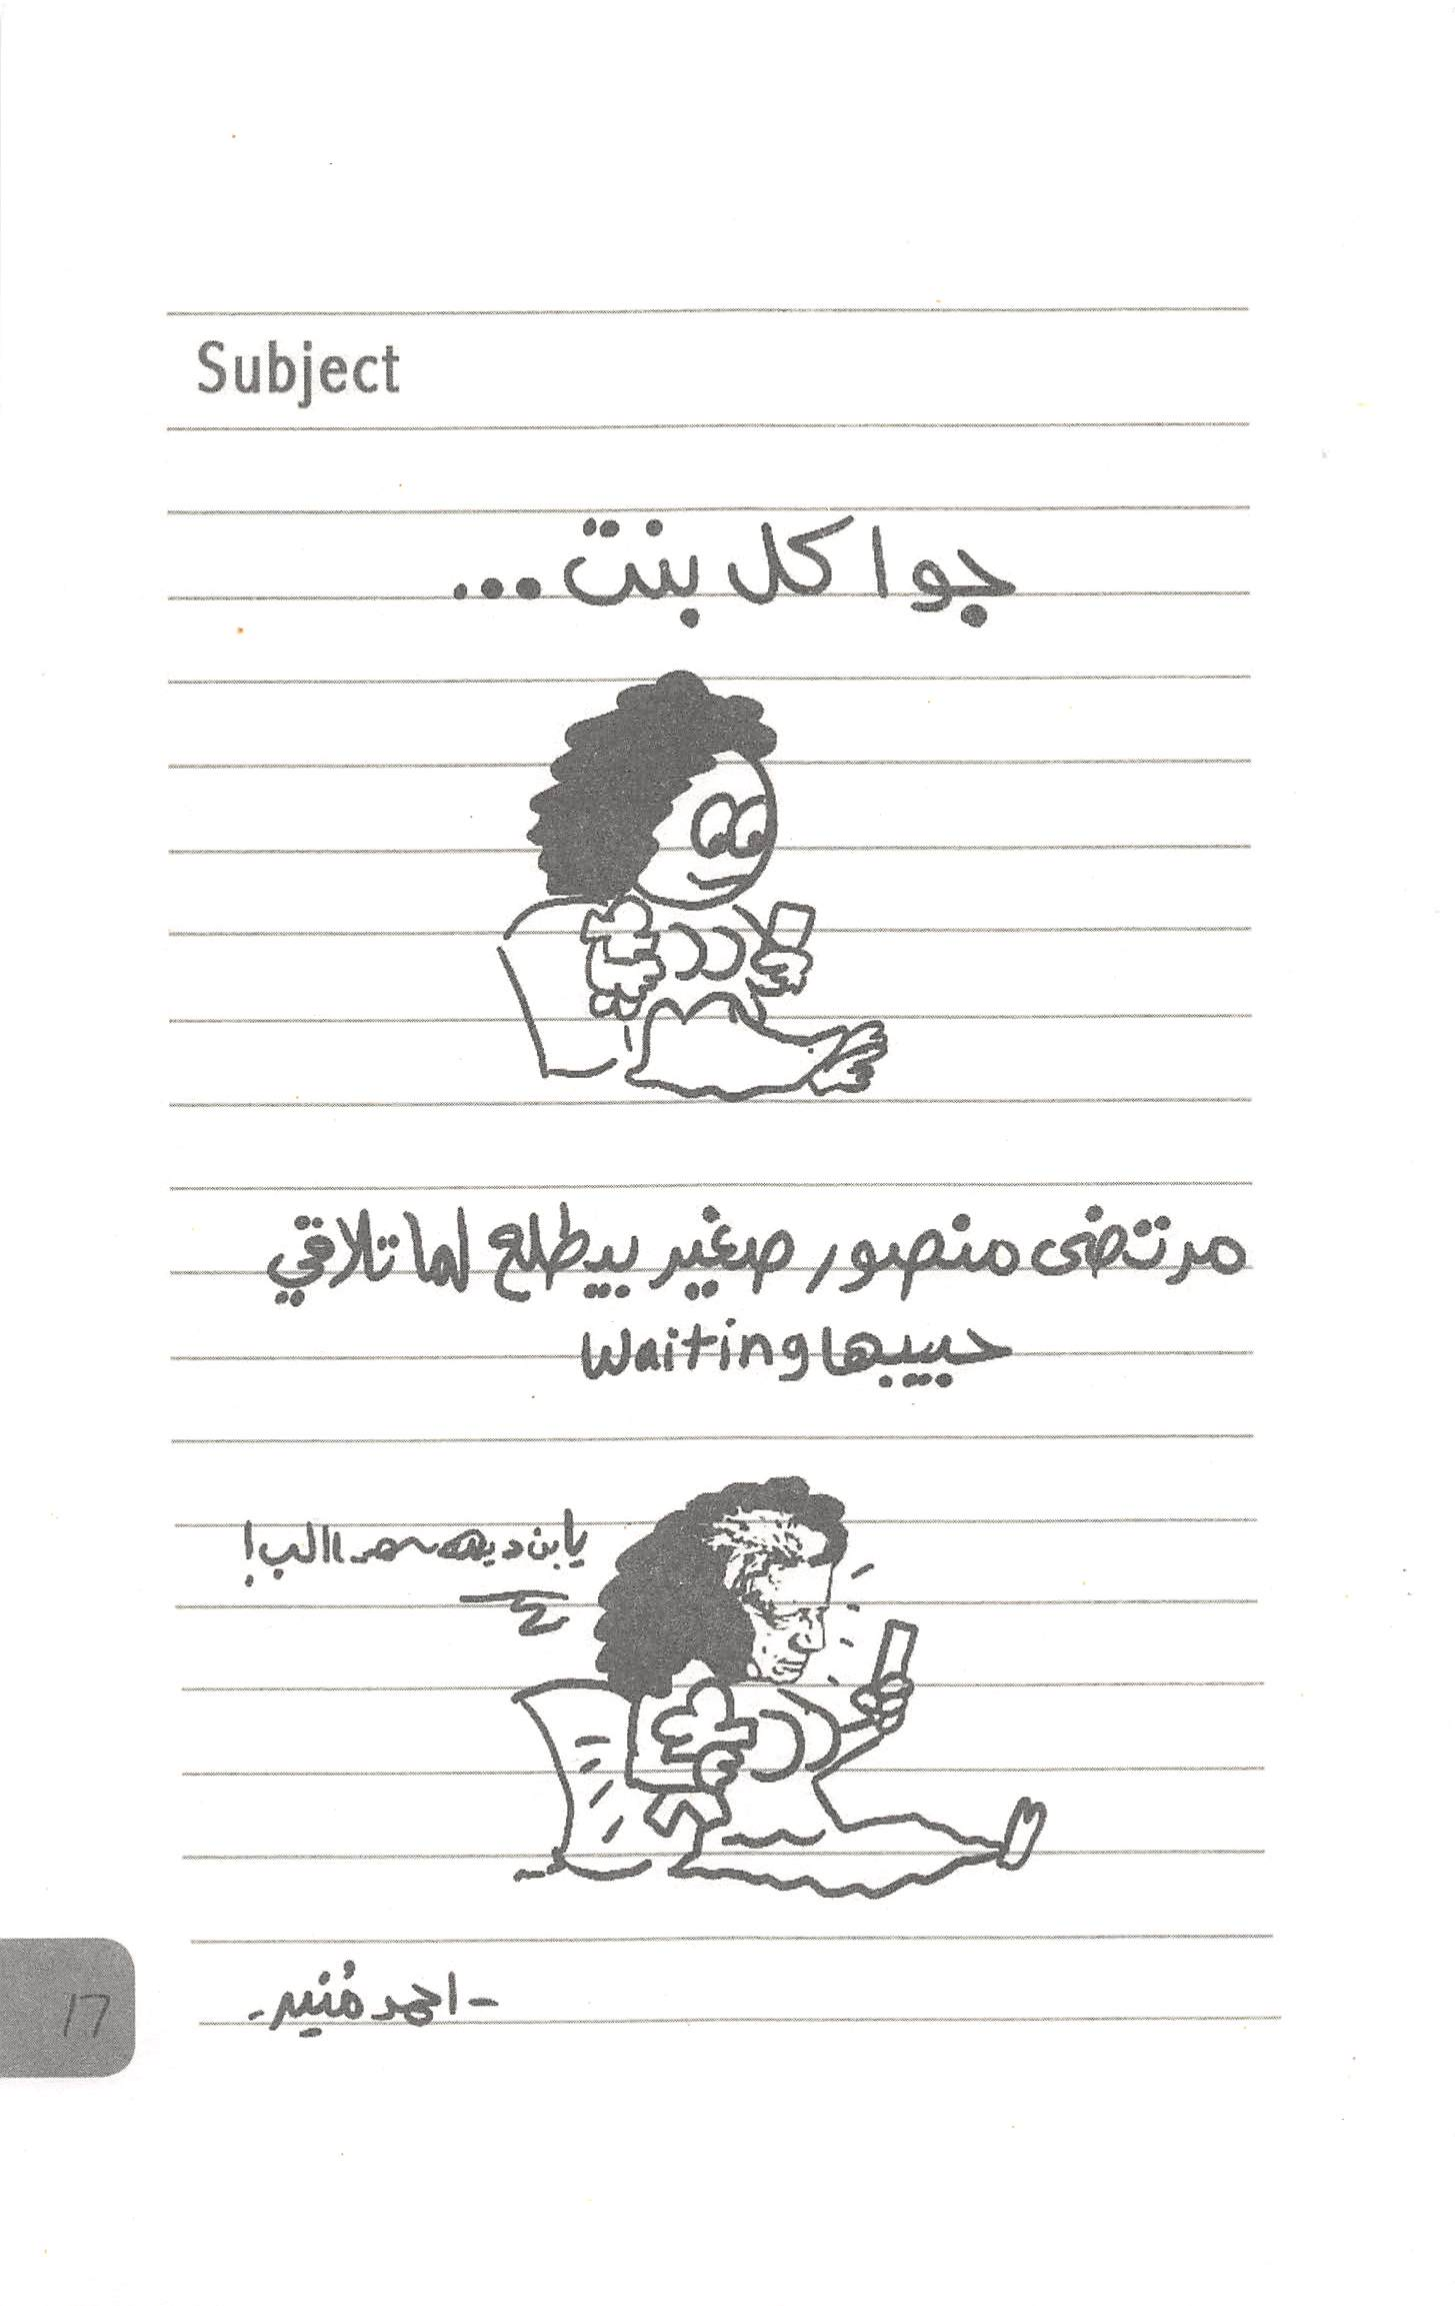 Subject
جوا كل بنت...
مرتضى منصور صغير بيطلع لما تلاقي
حبيبها waiting
يابن
- احمد مُنير -
17